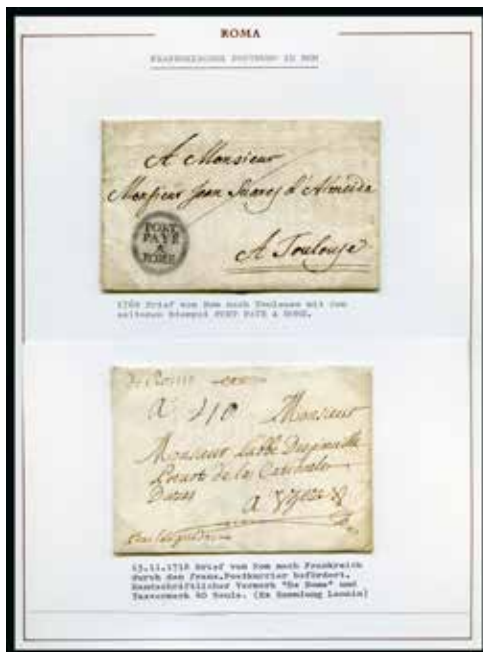 ROMA
FRANZÖSISCHES POSTBÜRO IN ROM
A Monsieur
Monsieur Jean Suares d'Almeida
PORT
PAYÉ
A
ROME
A Toulouse
Brief von Rom nach Toulouse mit dem
seltenen Stempel PORT PAYE A ROME.
De Rome
A Monsieur
Monsieur Labbé
de la
A
13.11.1718 Brief von Rom nach Frankreich
durch den franz.Postkurier befördert.
Handschriftlicher Vermerk "De Rome" und
Taxvermerk 40 Souls. (Ex Sammlung Leonin)